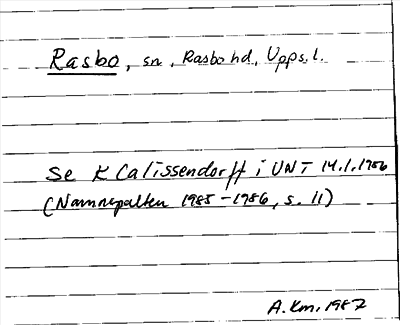 Rasbo, sn, Rasbo hd, Upps. l.
Se K Calissendorff i UNT 14.1.1986
(Namnspalten 1985-1986, s. 11)
A. Km. 1987